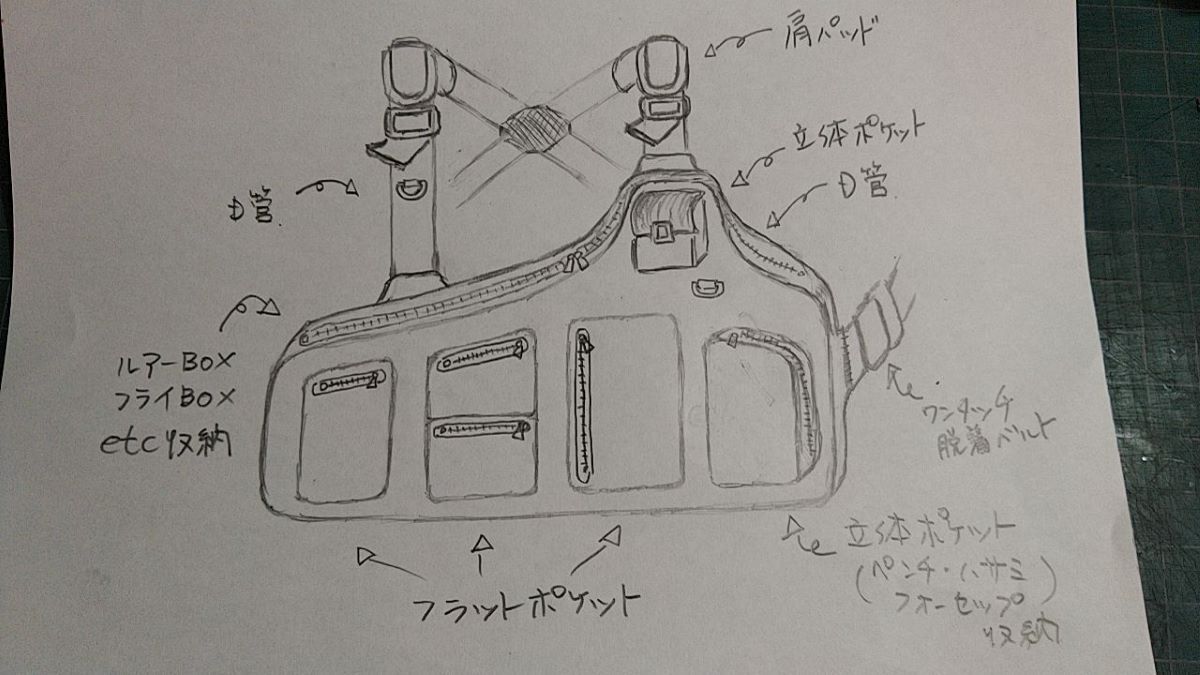 肩パッド
立体ポケット
D管
D管.
ルアーBOX
フライBOX
etc収納
ワンタッチ
脱着ベルト
フラットポケット
立体ポケット
(ペンチ・ハサミ
フォーセップ)
収納